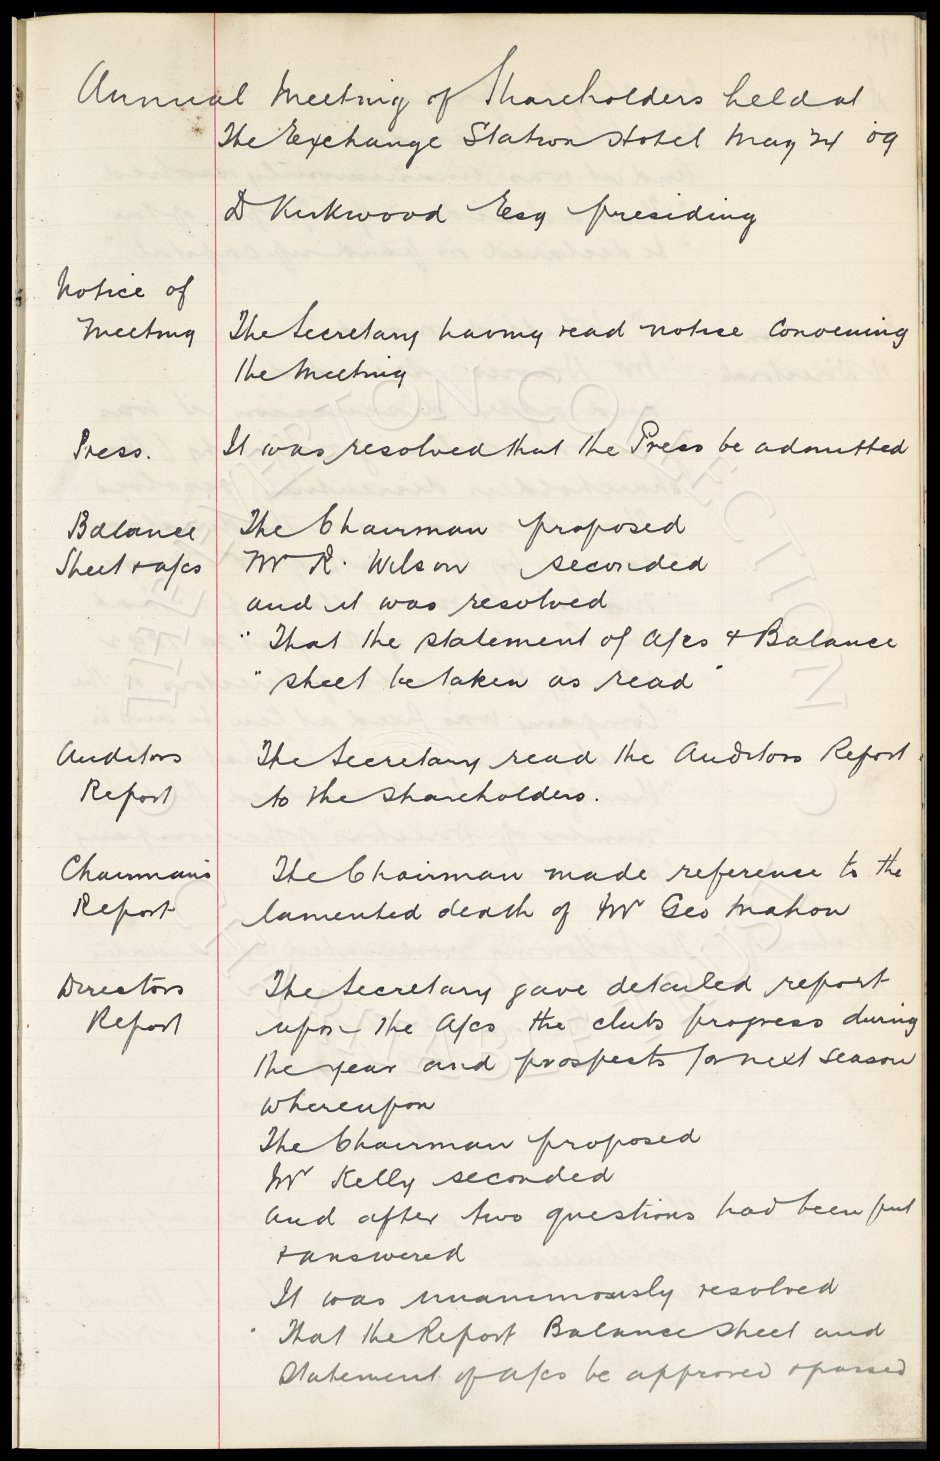 Annual Meeting of Shareholders held at
The Exchange Station Hotel May 24 '09
D Kirkwood Esq presiding
Notice of
Meeting
The Secretary having read notice convening
the Meeting
Press.
It was resolved that the Press be admitted
Balance
Sheet & a/cs
The Chairman proposed
Mr R. Wilson seconded
and it was resolved
" That the statement of A/cs & Balance
" sheet be taken as read "
Auditors
Report
The Secretary read the Auditors Report
to the Shareholders.
Chairmans
Report
The Chairman made reference to the
lamented death of Mr Geo Mahon
Directors
Report
The Secretary gave detailed report
upon the A/cs the clubs progress during
the year and prospects for next season
whereupon
The Chairman proposed
Mr Kelly seconded
and after two questions had been put
& answered
It was unanimously resolved
" That the Report Balance Sheet and
Statement of A/cs be approved & passed